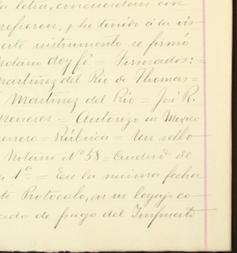 la letra, concuerdan con
refieren, y he tenido á la vis
este instrumento se firmó
notario doy fé = Firmados: =
Martinez del Rio de Thomas =
Martinez del Rio = José R.
= Autorizo en Mexico
= Rúbrica = Un sello
Notario Nº 58 = Ciudad de
1ª = En la misma fecha
Protocolo, en un legajo co
de pago del Impuesto